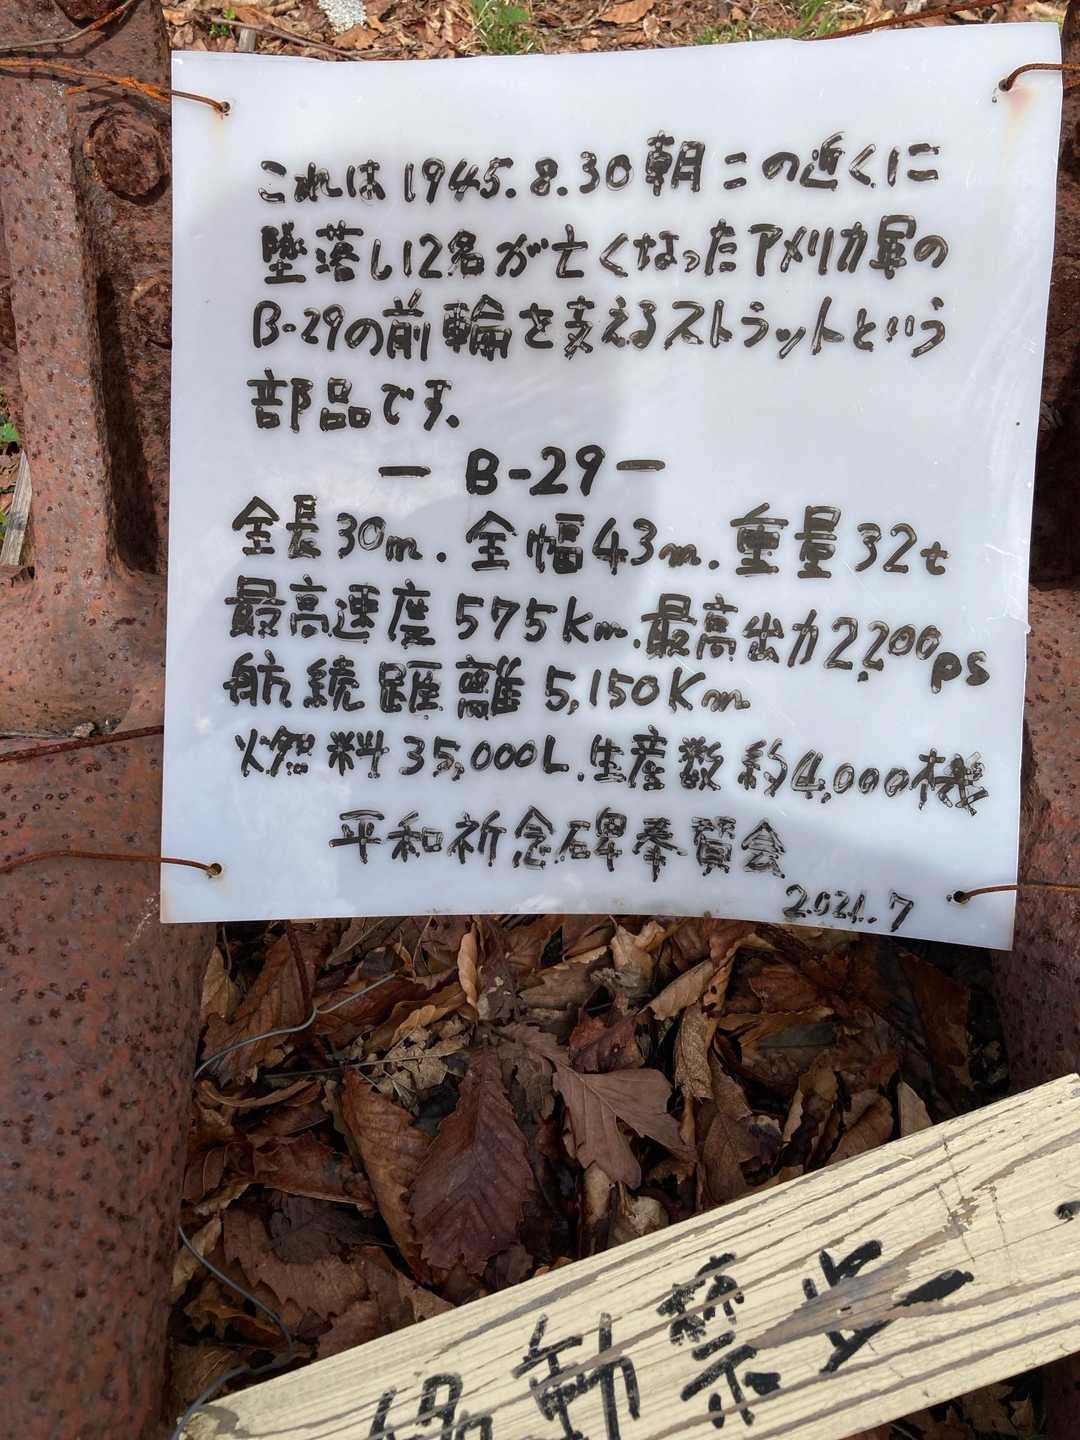 これは1945.8.30朝この近くに
墜落し12名が亡くなったアメリカ軍の
B-29の前輪を支えるストラットという
部品です。
ー B-29 ー
全長30m.全幅43m.重量32t
最高速度575km.最高出力2,200ps
航続距離5,150Km
燃料35,000L.生産数約4,000機
平和祈念碑奉賛会
2021.7
移動禁止